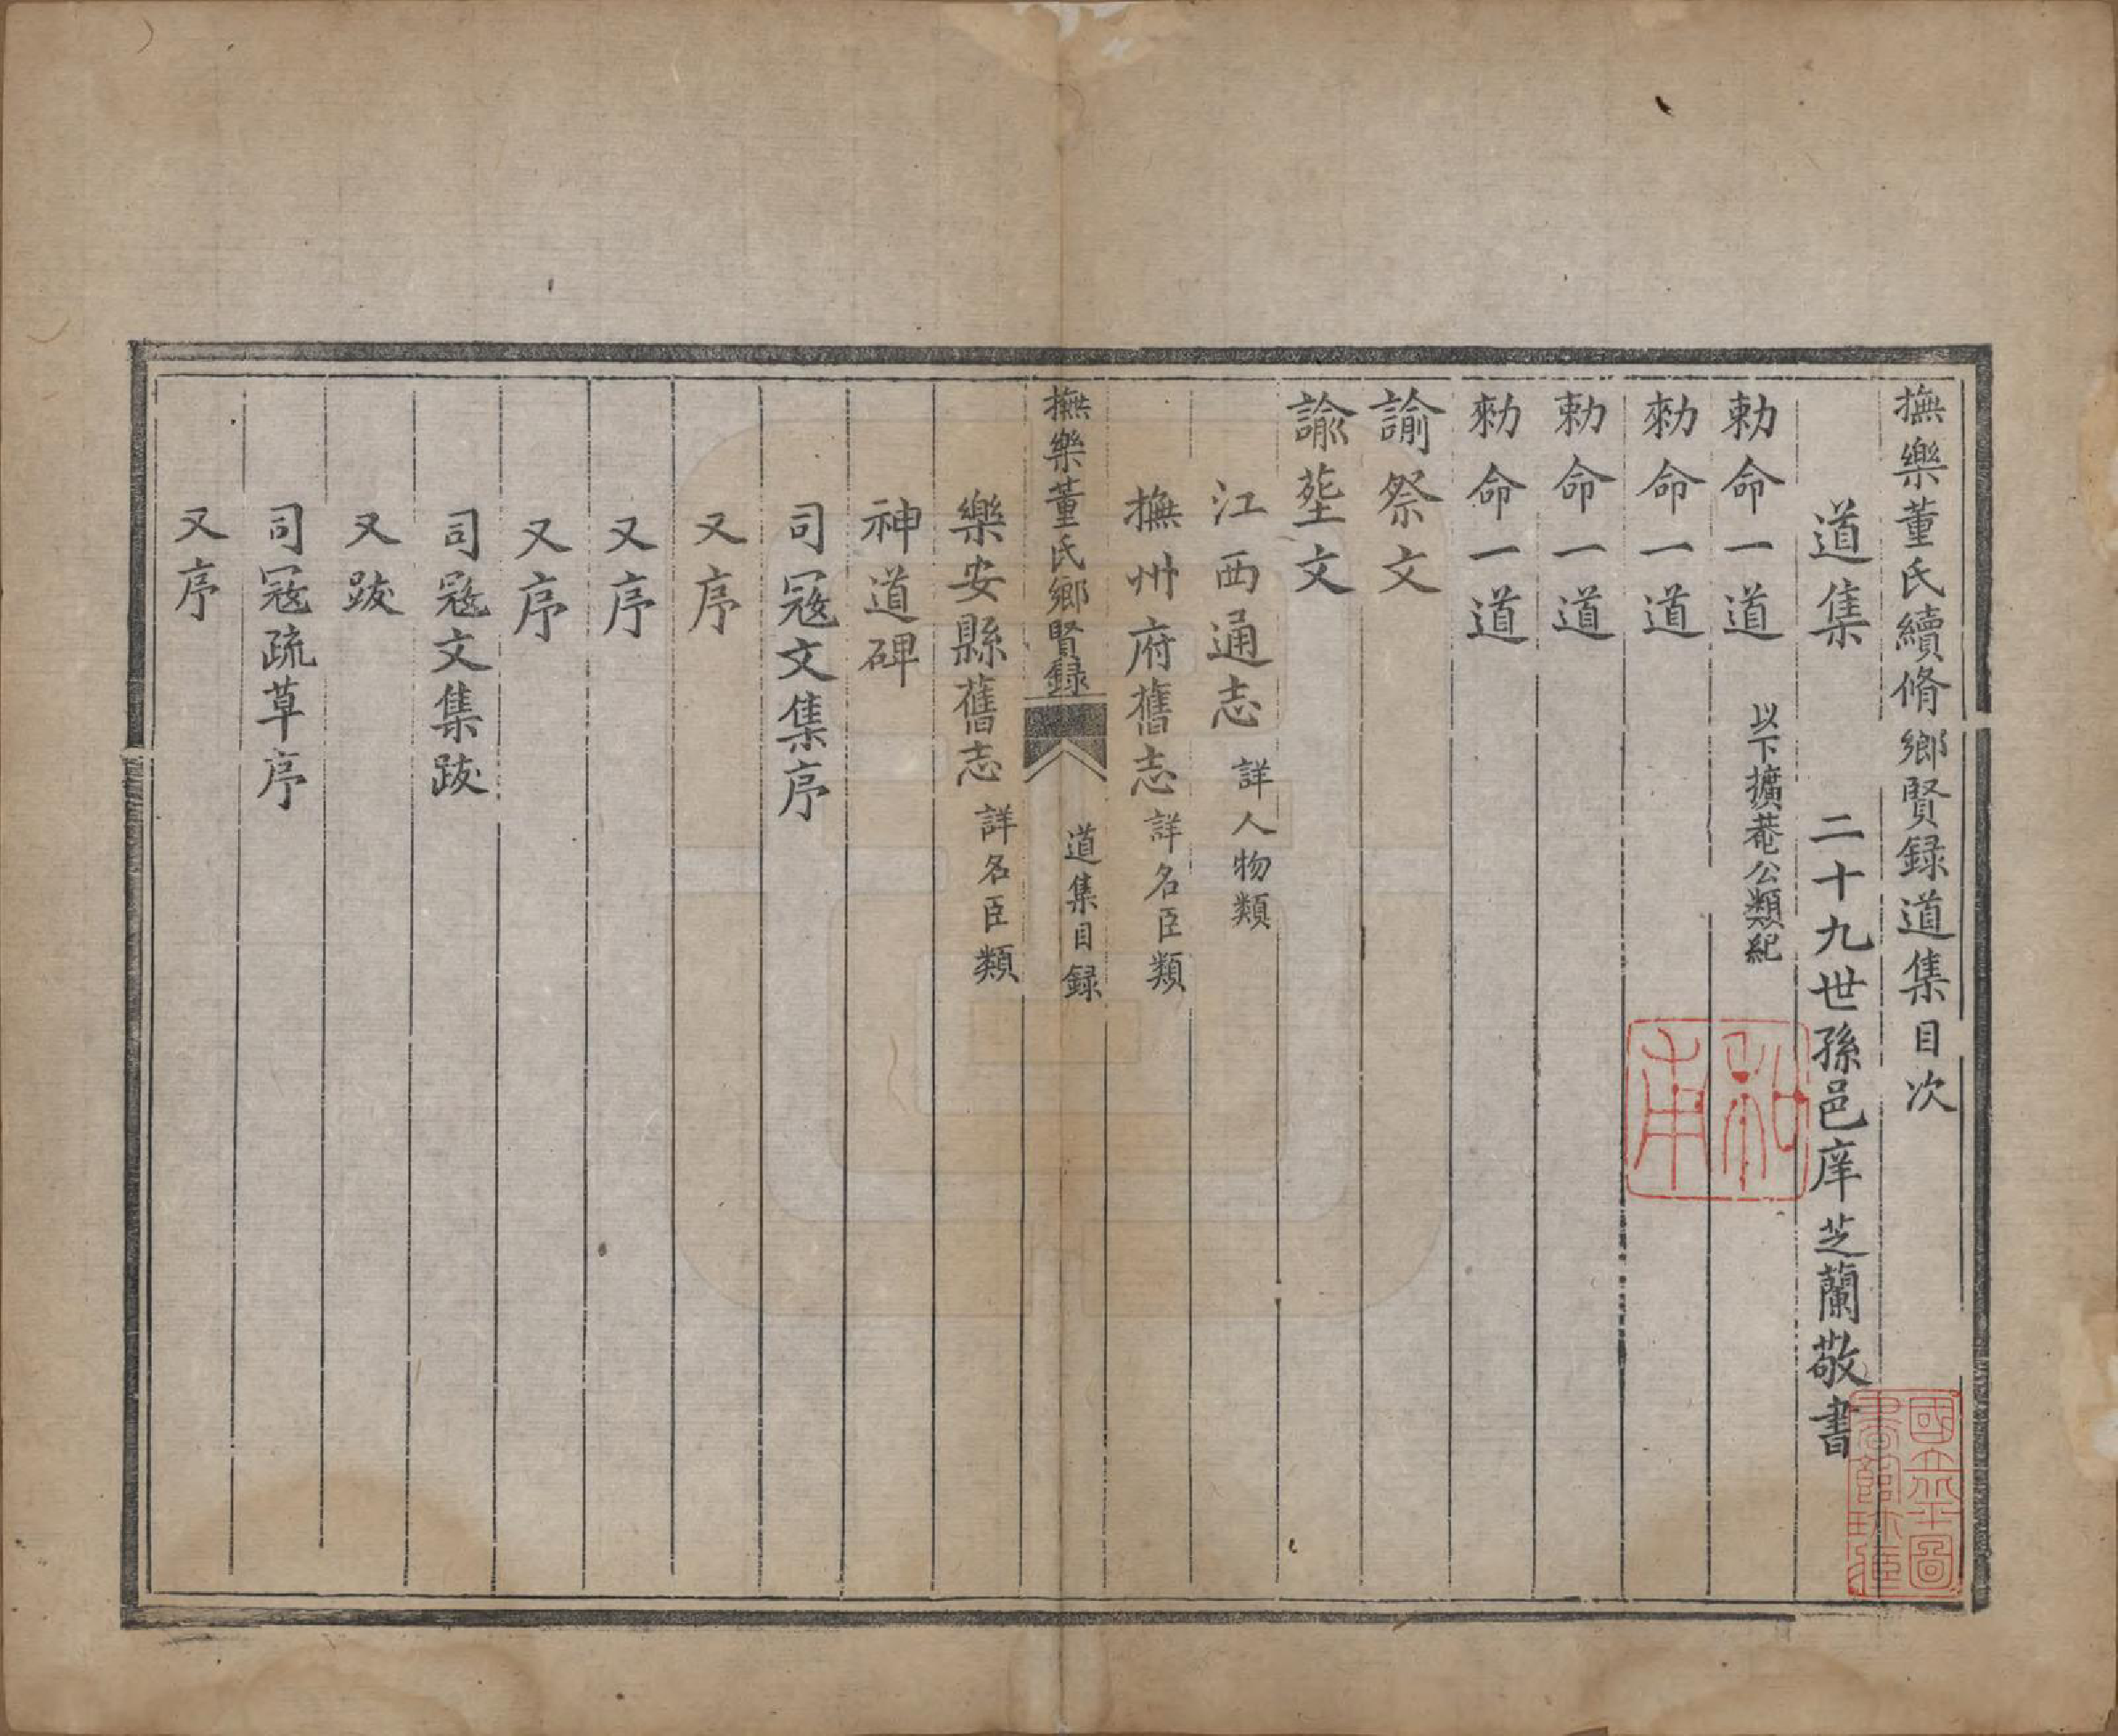 撫樂董氏續脩鄉賢録道集目次
道集 二十九世孫邑庠芝蘭敬書
勅命一道 以下擴菴公類紀
勅命一道
勅命一道
勅命一道
諭祭文
諭塟文
江西通志 詳人物類
撫州府舊志 詳名臣類
撫樂董氏鄉賢録 道集目録
樂安縣舊志 詳名臣類
神道碑
司寇文集序
又序
又序
又序
司寇文集跋
又跋
司寇疏草序
又序
國立北平圖
書館珍藏